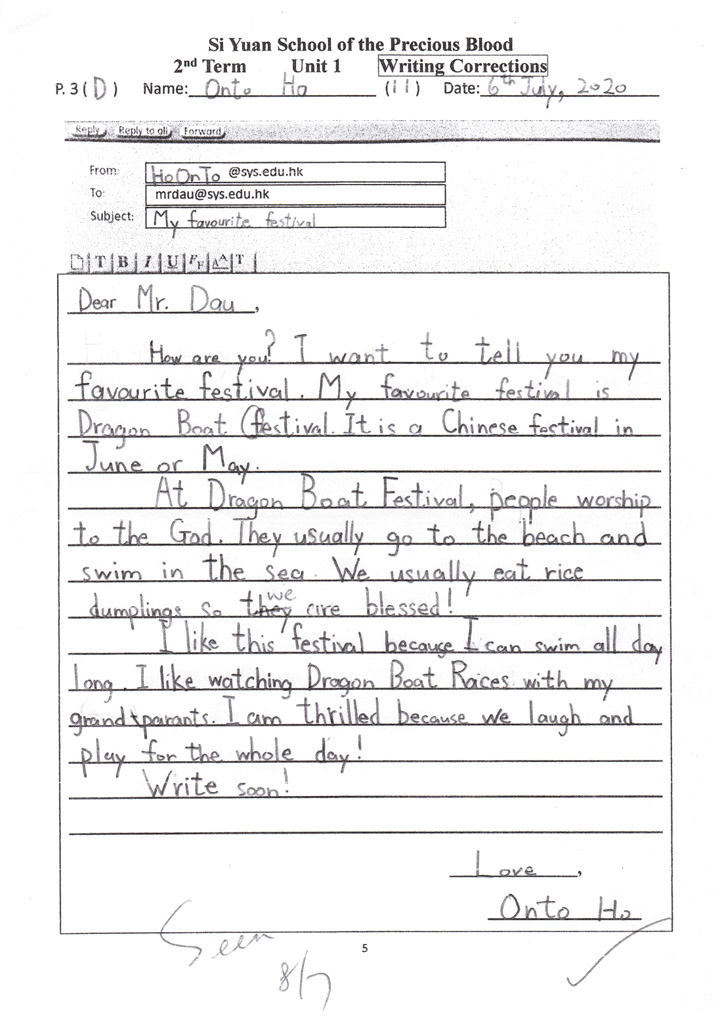 Si Yuan School of the Precious Blood
2nd Term Unit 1 Writing Corrections
P. 3 ( D ) Name: Onto Ho ( 11 ) Date: 6th July, 2020
Reply Reply to all Forward
From: HoOnTo @sys.edu.hk
To: mrdau@sys.edu.hk
Subject: My favourite festival
T B I U
Dear Mr. Dau ,
How are you? I want to tell you my
favourite festival. My favourite festival is
Dragon Boat festival. It is a Chinese festival in
June or May.
At Dragon Boat Festival, people worship
to the God. They usually go to the beach and
swim in the sea. We usually eat rice
dumplings so they we are blessed!
I like this festival because I can swim all day
long. I like watching Dragon Boat Races with my
grandparants. I am thrilled because we laugh and
play for the whole day!
Write soon!
Love ,
Onto Ho
Seen
8/7
5